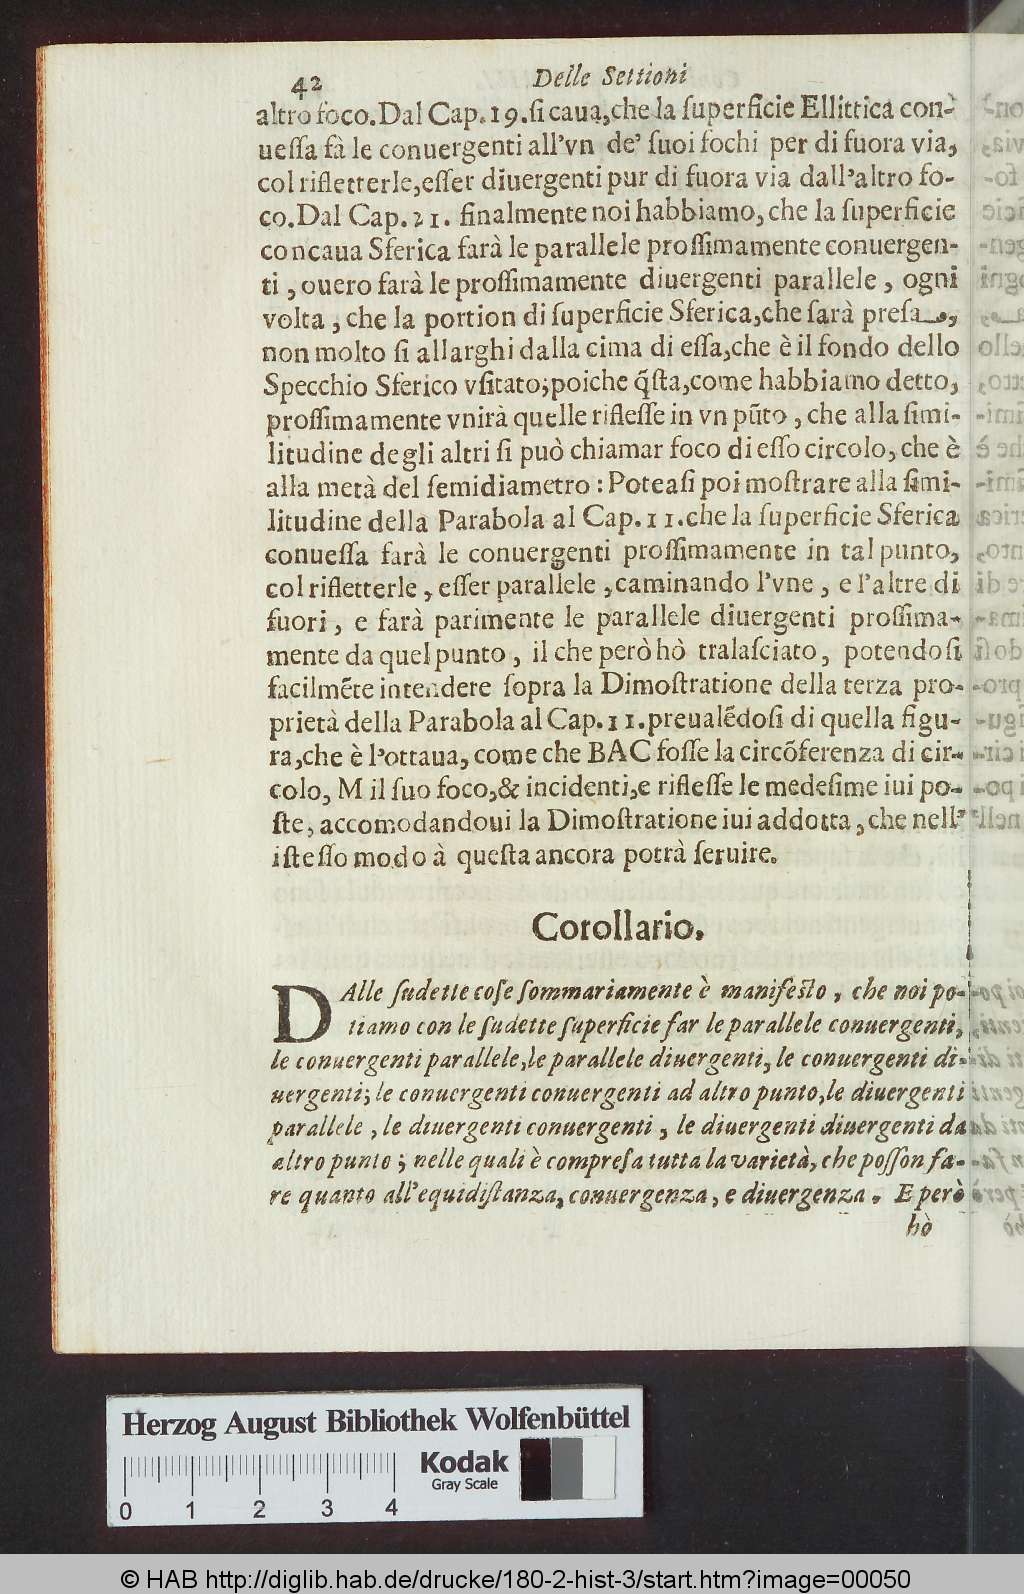 42 Delle Settioni
altro foco. Dal Cap. 19. ſi caua, che la ſuperficie Ellittica con-
ueſſa fà le conuergenti all'vn de' ſuoi fochi per di fuora via,
col rifletterle, eſſer diuergenti pur di fuora via dall'altro fo-
co. Dal Cap. 21. finalmente noi habbiamo, che la ſuperficie
concaua Sferica farà le parallele proſſimamente conuergen-
ti, ouero farà le proſſimamente diuergenti parallele, ogni
volta, che la portion di ſuperficie Sferica, che ſarà preſa,
non molto ſi allarghi dalla cima di eſſa, che è il fondo dello
Specchio Sferico vſitato; poiche q̃ſta, come habbiamo detto,
proſſimamente vnirà quelle rifleſſe in vn pũto, che alla ſimi-
litudine degli altri ſi può chiamar foco di eſſo circolo, che è
alla metà del ſemidiametro: Poteaſi poi moſtrare alla ſimi-
litudine della Parabola al Cap. 11. che la ſuperficie Sferica
conueſſa farà le conuergenti proſſimamente in tal punto,
col rifletterle, eſſer parallele, caminando l'vne, e l'altre di
fuori, e farà parimente le parallele diuergenti proſſima-
mente da quel punto, il che però hò tralaſciato, potendoſi
facilmẽte intendere ſopra la Dimoſtratione della terza pro-
prietà della Parabola al Cap. 11. preualẽdoſi di quella figu-
ra, che è l'ottaua, come che BAC foſſe la circõferenza di cir-
colo, M il ſuo foco, & incidenti, e rifleſſe le medeſime iui po-
ſte, accomodandoui la Dimoſtratione iui addotta, che nell'
iſteſſo modo à queſta ancora potrà ſeruire.
Corollario.
DAlle ſudette coſe ſommariamente è manifeſto, che noi po-
tiamo con le ſudette ſuperficie far le parallele conuergenti,
le conuergenti parallele, le parallele diuergenti, le conuergenti di-
uergenti; le conuergenti conuergenti ad altro punto, le diuergenti
parallele, le diuergenti conuergenti, le diuergenti diuergenti da
altro punto; nelle quali è compreſa tutta la varietà, che poſſon fa-
re quanto all'equidiſtanza, conuergenza, e diuergenza. E però
hò
Herzog August Bibliothek Wolfenbüttel
Kodak
Gray Scale
0 1 2 3 4
© HAB http://diglib.hab.de/drucke/180-2-hist-3/start.htm?image=00050